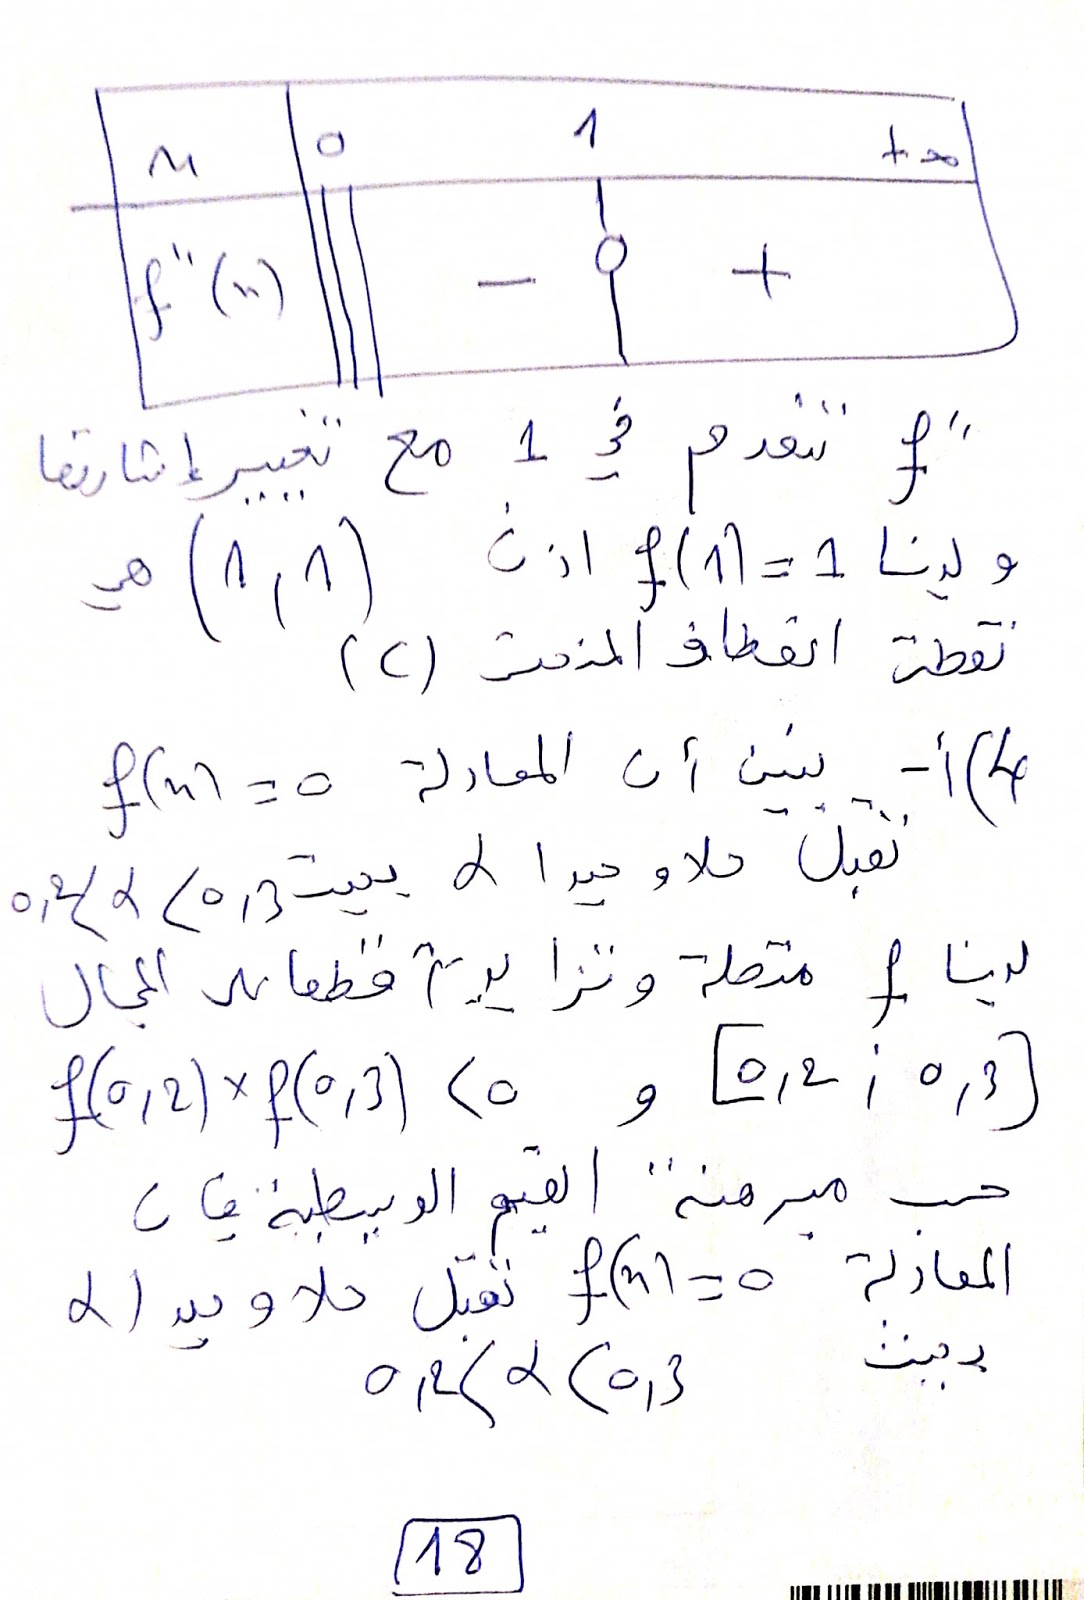 x 0 1 +∞
f"(x) - 0 +
f" تنعدم في 1 مع تغيير إشارتها
و لدينا f(1) = 1 اذن (1,1) هي
نقطة انعطاف المنحنى (C)
4) أ- نبين أن المعادلة f(x) = 0
تقبل حلا وحيدا α بحيث 0,2 < α < 0,3
لدينا f متصلة وتزايدية قطعا على المجال
[0,2 ; 0,3] و f(0,2) × f(0,3) < 0
حسب مبرهنة القيم الوسيطية فإن
المعادلة f(x) = 0 تقبل حلا وحيدا α
بحيث 0,2 < α < 0,3
18